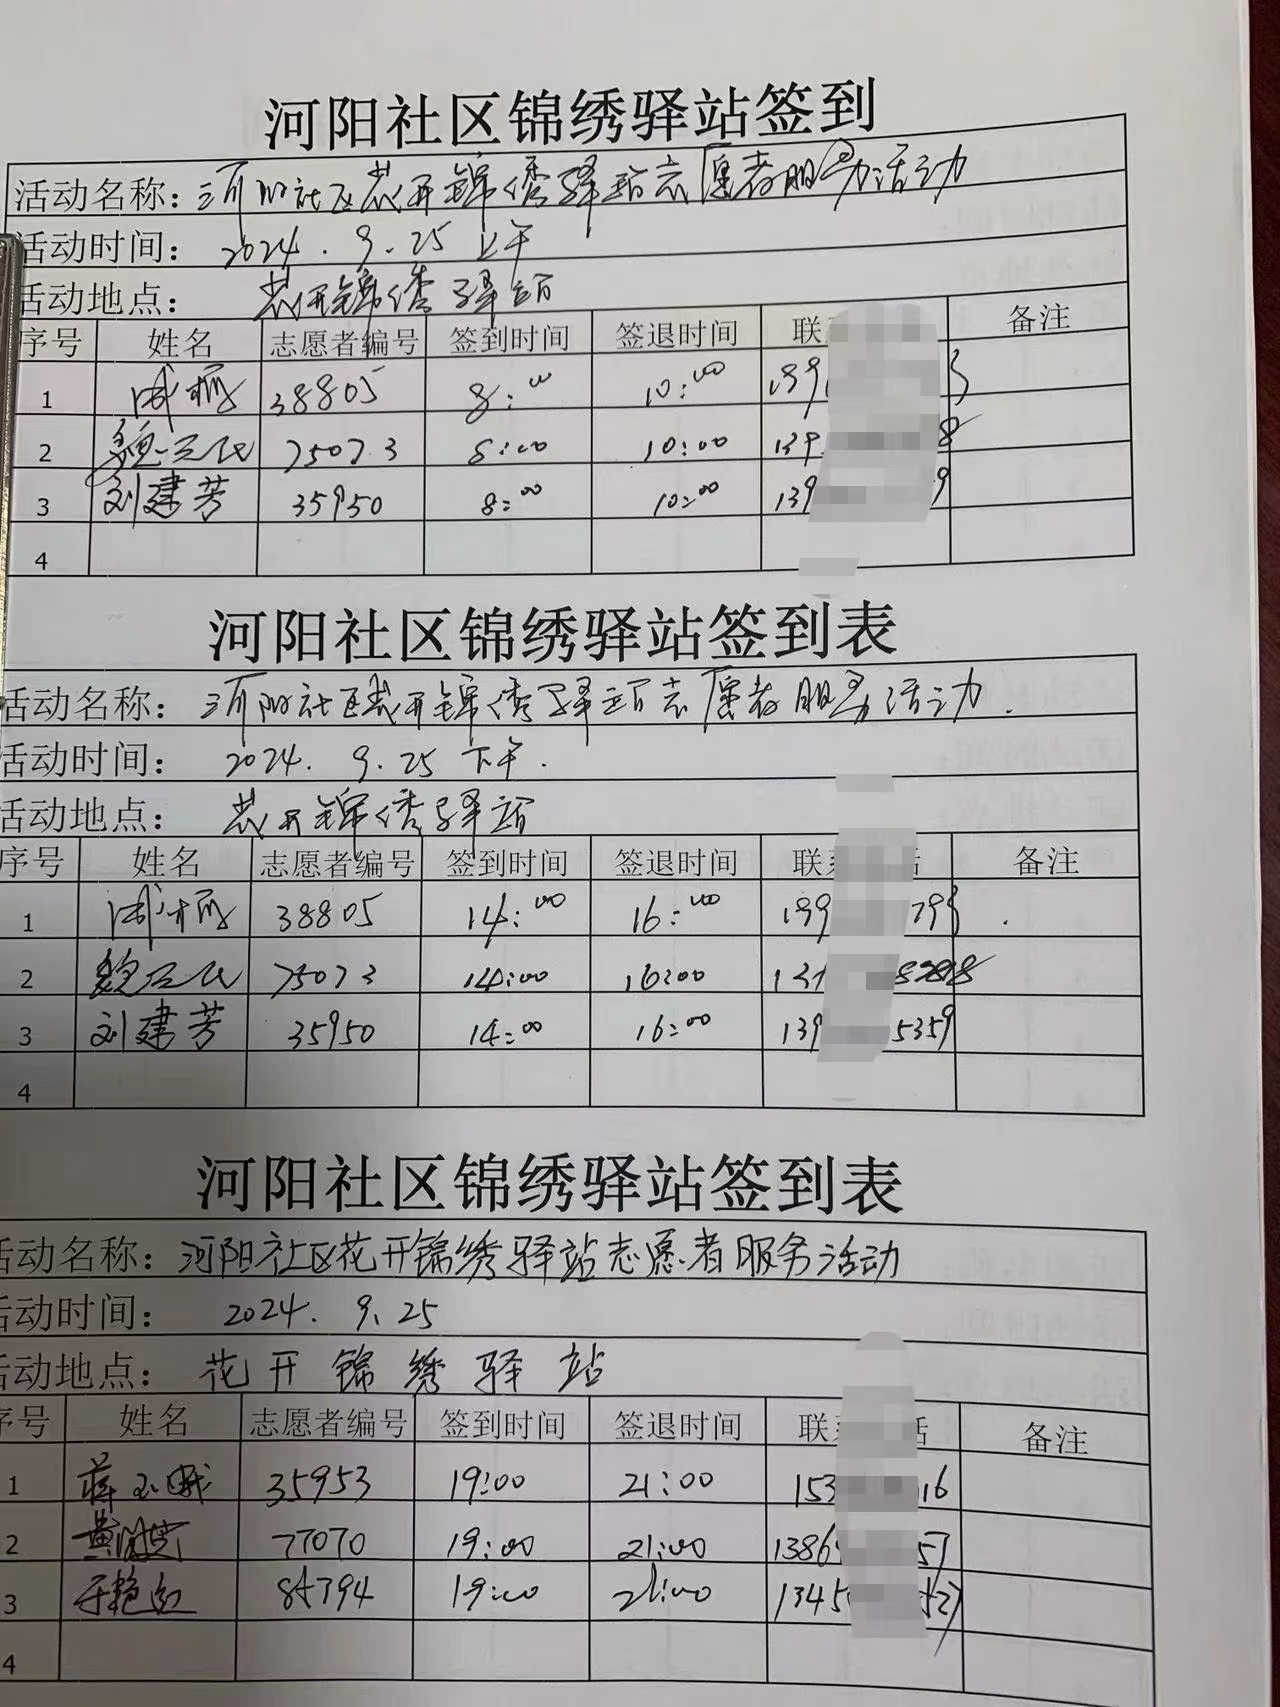 河阳社区锦绣驿站签到
活动名称：河阳社区花开锦绣驿站志愿者服务活动
活动时间： 2024.9.25 上午
活动地点： 花开锦绣驿站
序号 姓名 志愿者编号 签到时间 签退时间 联 备注
1 38805 8:00 10:00 199 3
2 75073 8:00 10:00 139 8
3 刘建芳 35950 8:00 10:00 139 9
4
河阳社区锦绣驿站签到表
活动名称：河阳社区花开锦绣驿站志愿者服务活动.
活动时间： 2024.9.25 下午.
活动地点： 花开锦绣驿站
序号 姓名 志愿者编号 签到时间 签退时间 联 话 备注
1 38805 14:00 16:00 199 793
2 75073 14:00 16:00
3 刘建芳 35950 14:00 16:00 139 5359
4
河阳社区锦绣驿站签到表
活动名称：河阳社区花开锦绣驿站志愿者服务活动
活动时间： 2024.9.25
活动地点： 花开锦绣驿站
序号 姓名 志愿者编号 签到时间 签退时间 联 话 备注
1 35953 19:00 21:00 153 16
2 77070 19:00 21:00 1386 57
3 于艳红 85794 19:00 21:00 1345
4